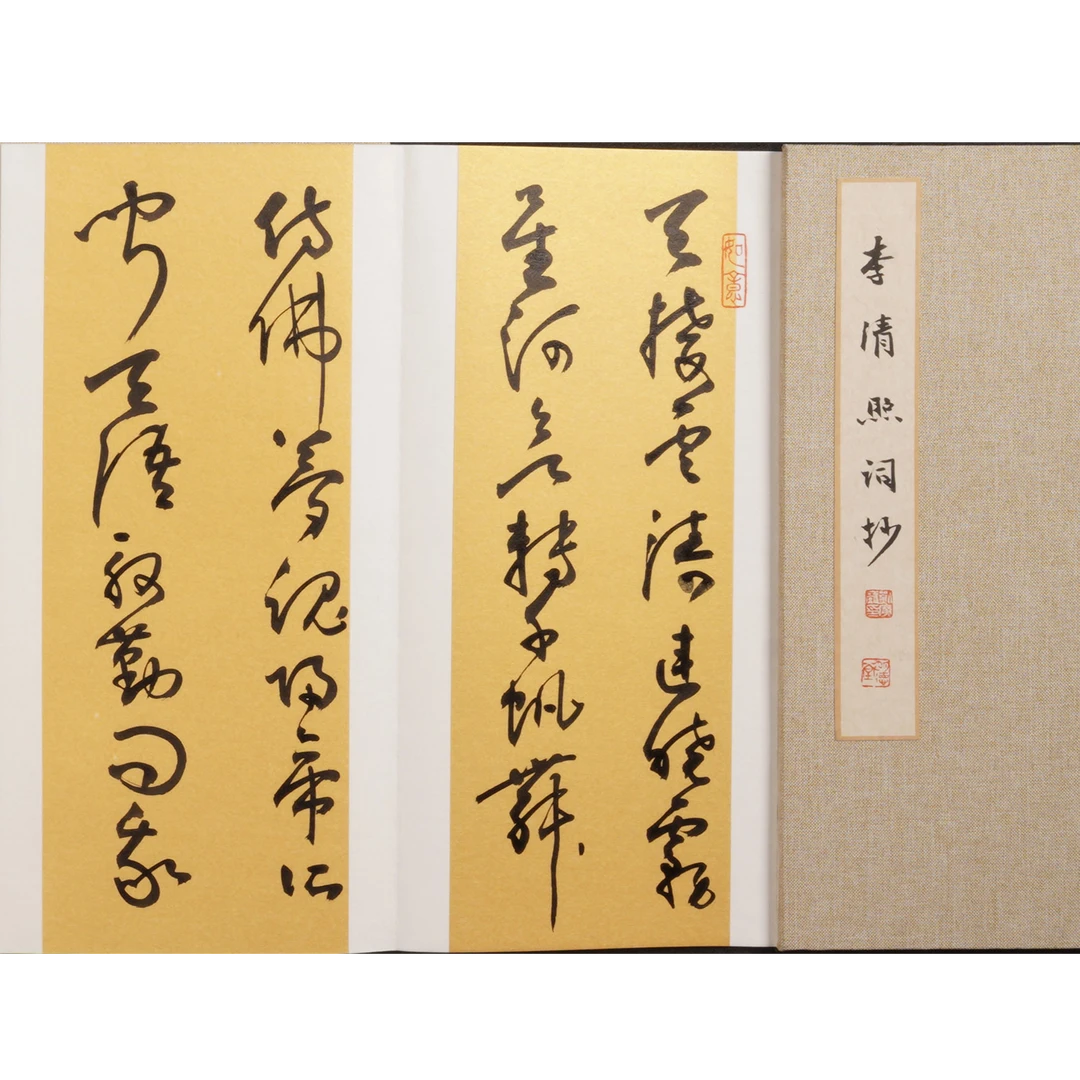 李清照詞抄
如意
天接雲濤連曉霧
星河欲轉千帆舞
仿佛夢魂歸帝所
聞天語殷勤問我